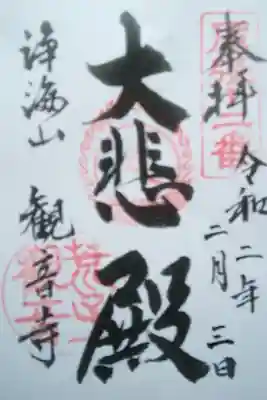 奉拝 令和二年二月三日
大悲殿
浄海山 観音寺